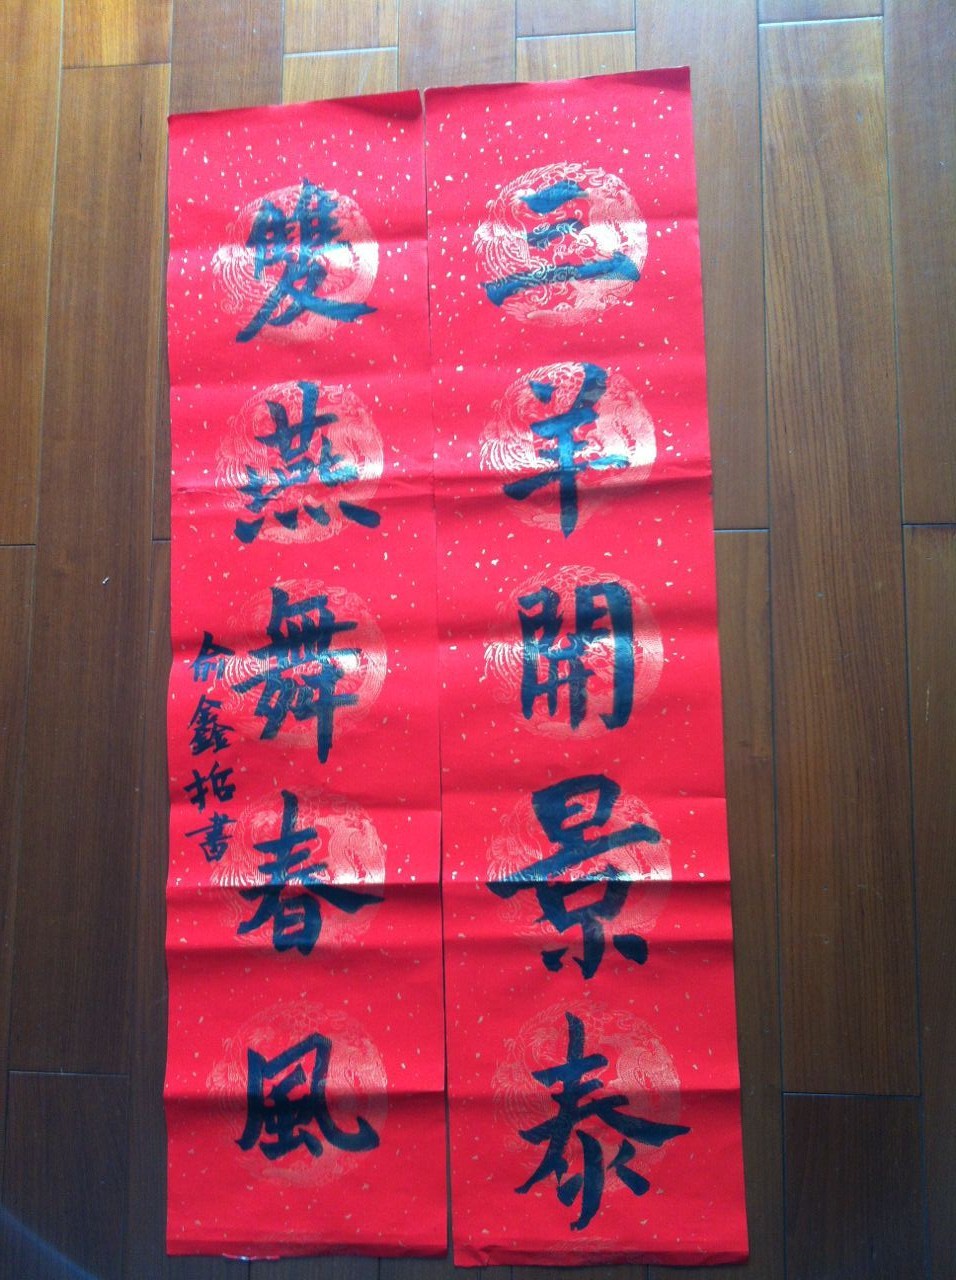 三羊開景泰
雙燕舞春風
俞鑫哲書